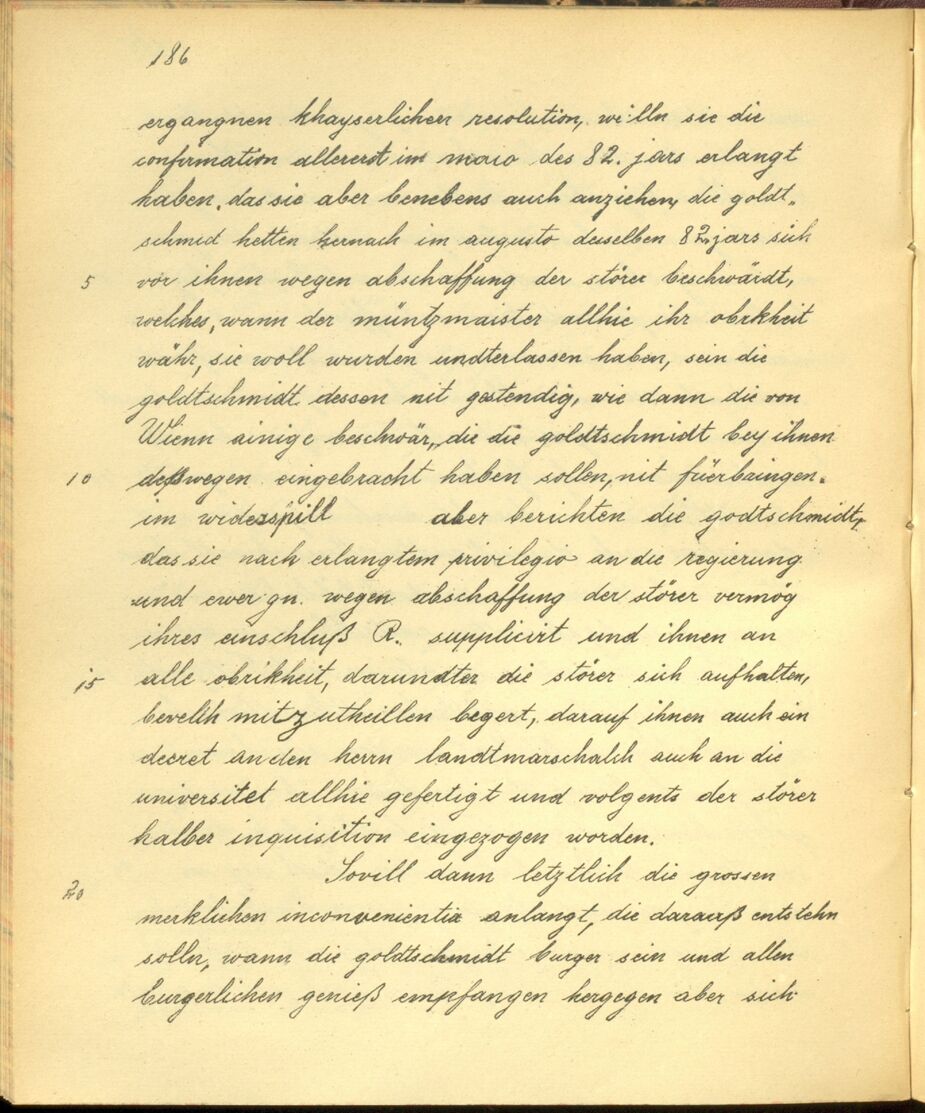 186
ergangnen khayserlichen resolution, wi:lln sie die
confirmation allererst im maio des 82. jars erlangt
haben. das sie aber benebens auch anziehen, die goldt„
schmid hetten hernach im augusto desselben 82. jars sich
5 vor ihnen wegen abschaffung der störer beschwärdt,
welches, wann der müntzmaister allhie ihr obrkheit
währ, sie woll wurden undterlassen haben, sein die
goldtschmidt dessen nit gestendig, wie dann die von
Wienn ainige beschwär, die die goldtschmidt bey ihnen
10 deßwegen eingebracht haben sollen, nit füerbringen.
im widerspill aber berichten die godtschmidt,
das sie nach erlangtem privilegio an die regierung
und ewer gn. wegen abschaffung der störer vermög
ihres einschluß R. supplicirt und ihnen an
15 alle obrikheit, darundter die störer sich aufhalten,
bevelh mitzutheillen begert, darauf ihnen auch ein
decret an den herrn landtmarschalch auch an die
universitet allhie gefertigt und volgents der störer
halber inquisition eingezogen worden.
20 Sovill dann letztlich die grossen
merklichen inconvenientia anlangt, die darauß entstehn
solln, wann die goldtschmidt burger sein und allen
burgerlichen genieß empfangen hergegen aber sich